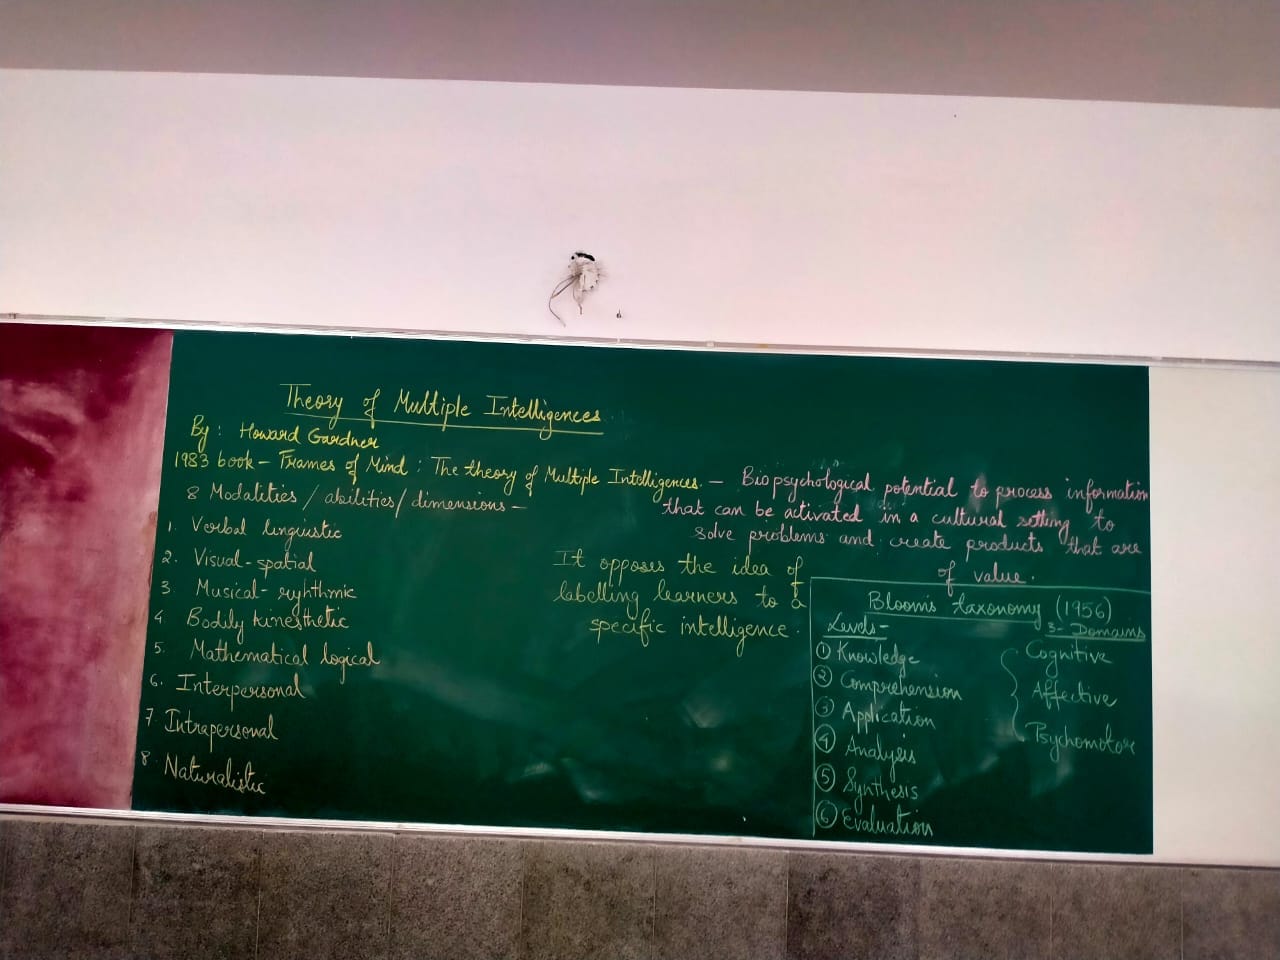 Theory of Multiple Intelligences
By: Howard Gardner
1983 book - Frames of Mind: The theory of Multiple Intelligences. - Biopsychological potential to process information
that can be activated in a cultural setting to
solve problems and create products that are
of value.
8 Modalities / abilities / dimensions -
1. Verbal linguistic
2. Visual-spatial
3. Musical-ryhthmic
4. Bodily kinesthetic
5. Mathematical logical
6. Interpersonal
7. Intrapersonal
8. Naturalistic
It opposes the idea of
labelling learners to a
specific intelligence.
Bloom's taxonomy (1956)
Levels-
① Knowledge
② Comprehension
③ Application
④ Analysis
⑤ Synthesis
⑥ Evaluation
3- Domains
Cognitive
Affective
Psychomotor